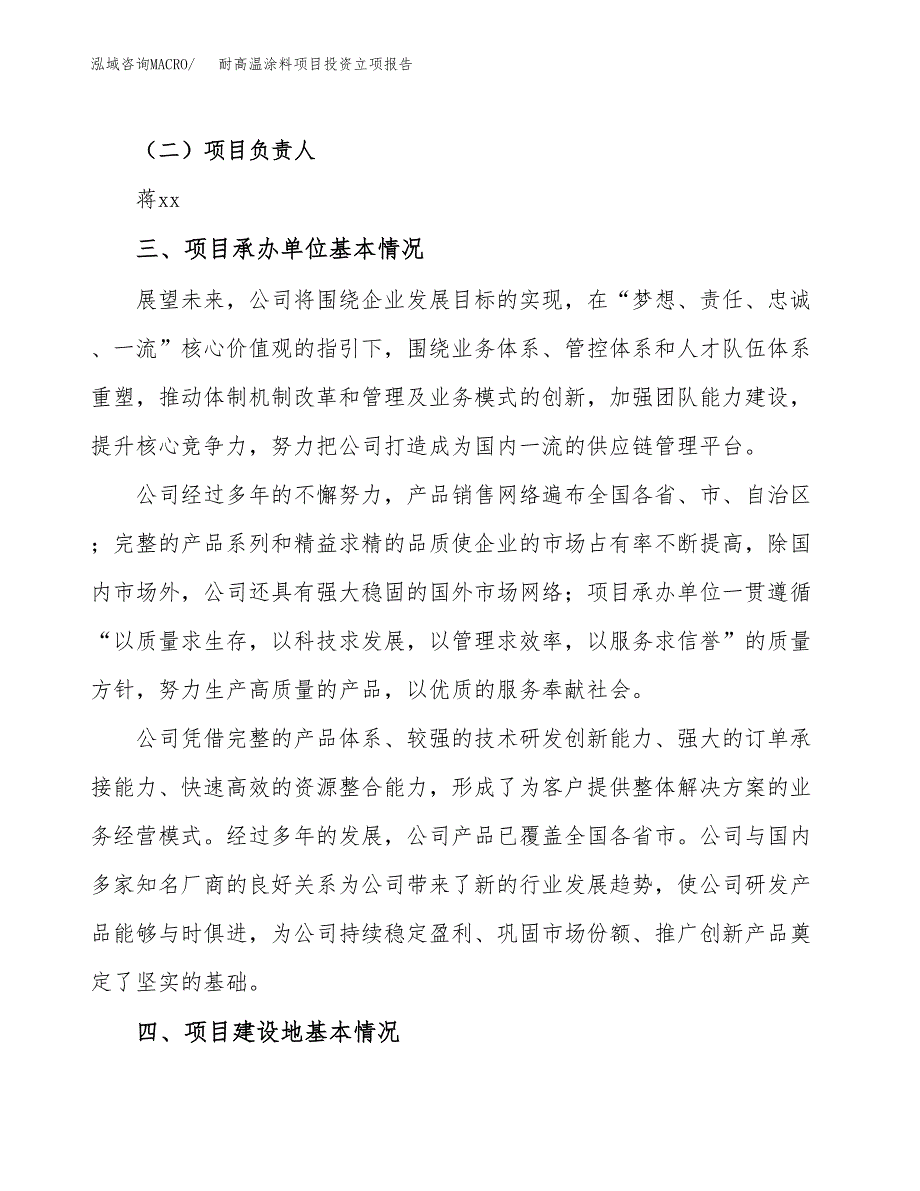 泓域咨询MACRO/ 耐高温涂料项目投资立项报告
（二）项目负责人
蒋xx
三、项目承办单位基本情况
展望未来，公司将围绕企业发展目标的实现，在“梦想、责任、忠诚
、一流”核心价值观的指引下，围绕业务体系、管控体系和人才队伍体系
重塑，推动体制机制改革和管理及业务模式的创新，加强团队能力建设，
提升核心竞争力，努力把公司打造成为国内一流的供应链管理平台。
公司经过多年的不懈努力，产品销售网络遍布全国各省、市、自治区
；完整的产品系列和精益求精的品质使企业的市场占有率不断提高，除国
内市场外，公司还具有强大稳固的国外市场网络；项目承办单位一贯遵循
“以质量求生存，以科技求发展，以管理求效率，以服务求信誉”的质量
方针，努力生产高质量的产品，以优质的服务奉献社会。
公司凭借完整的产品体系、较强的技术研发创新能力、强大的订单承
接能力、快速高效的资源整合能力，形成了为客户提供整体解决方案的业
务经营模式。经过多年的发展，公司产品已覆盖全国各省市。公司与国内
多家知名厂商的良好关系为公司带来了新的行业发展趋势，使公司研发产
品能够与时俱进，为公司持续稳定盈利、巩固市场份额、推广创新产品奠
定了坚实的基础。
四、项目建设地基本情况